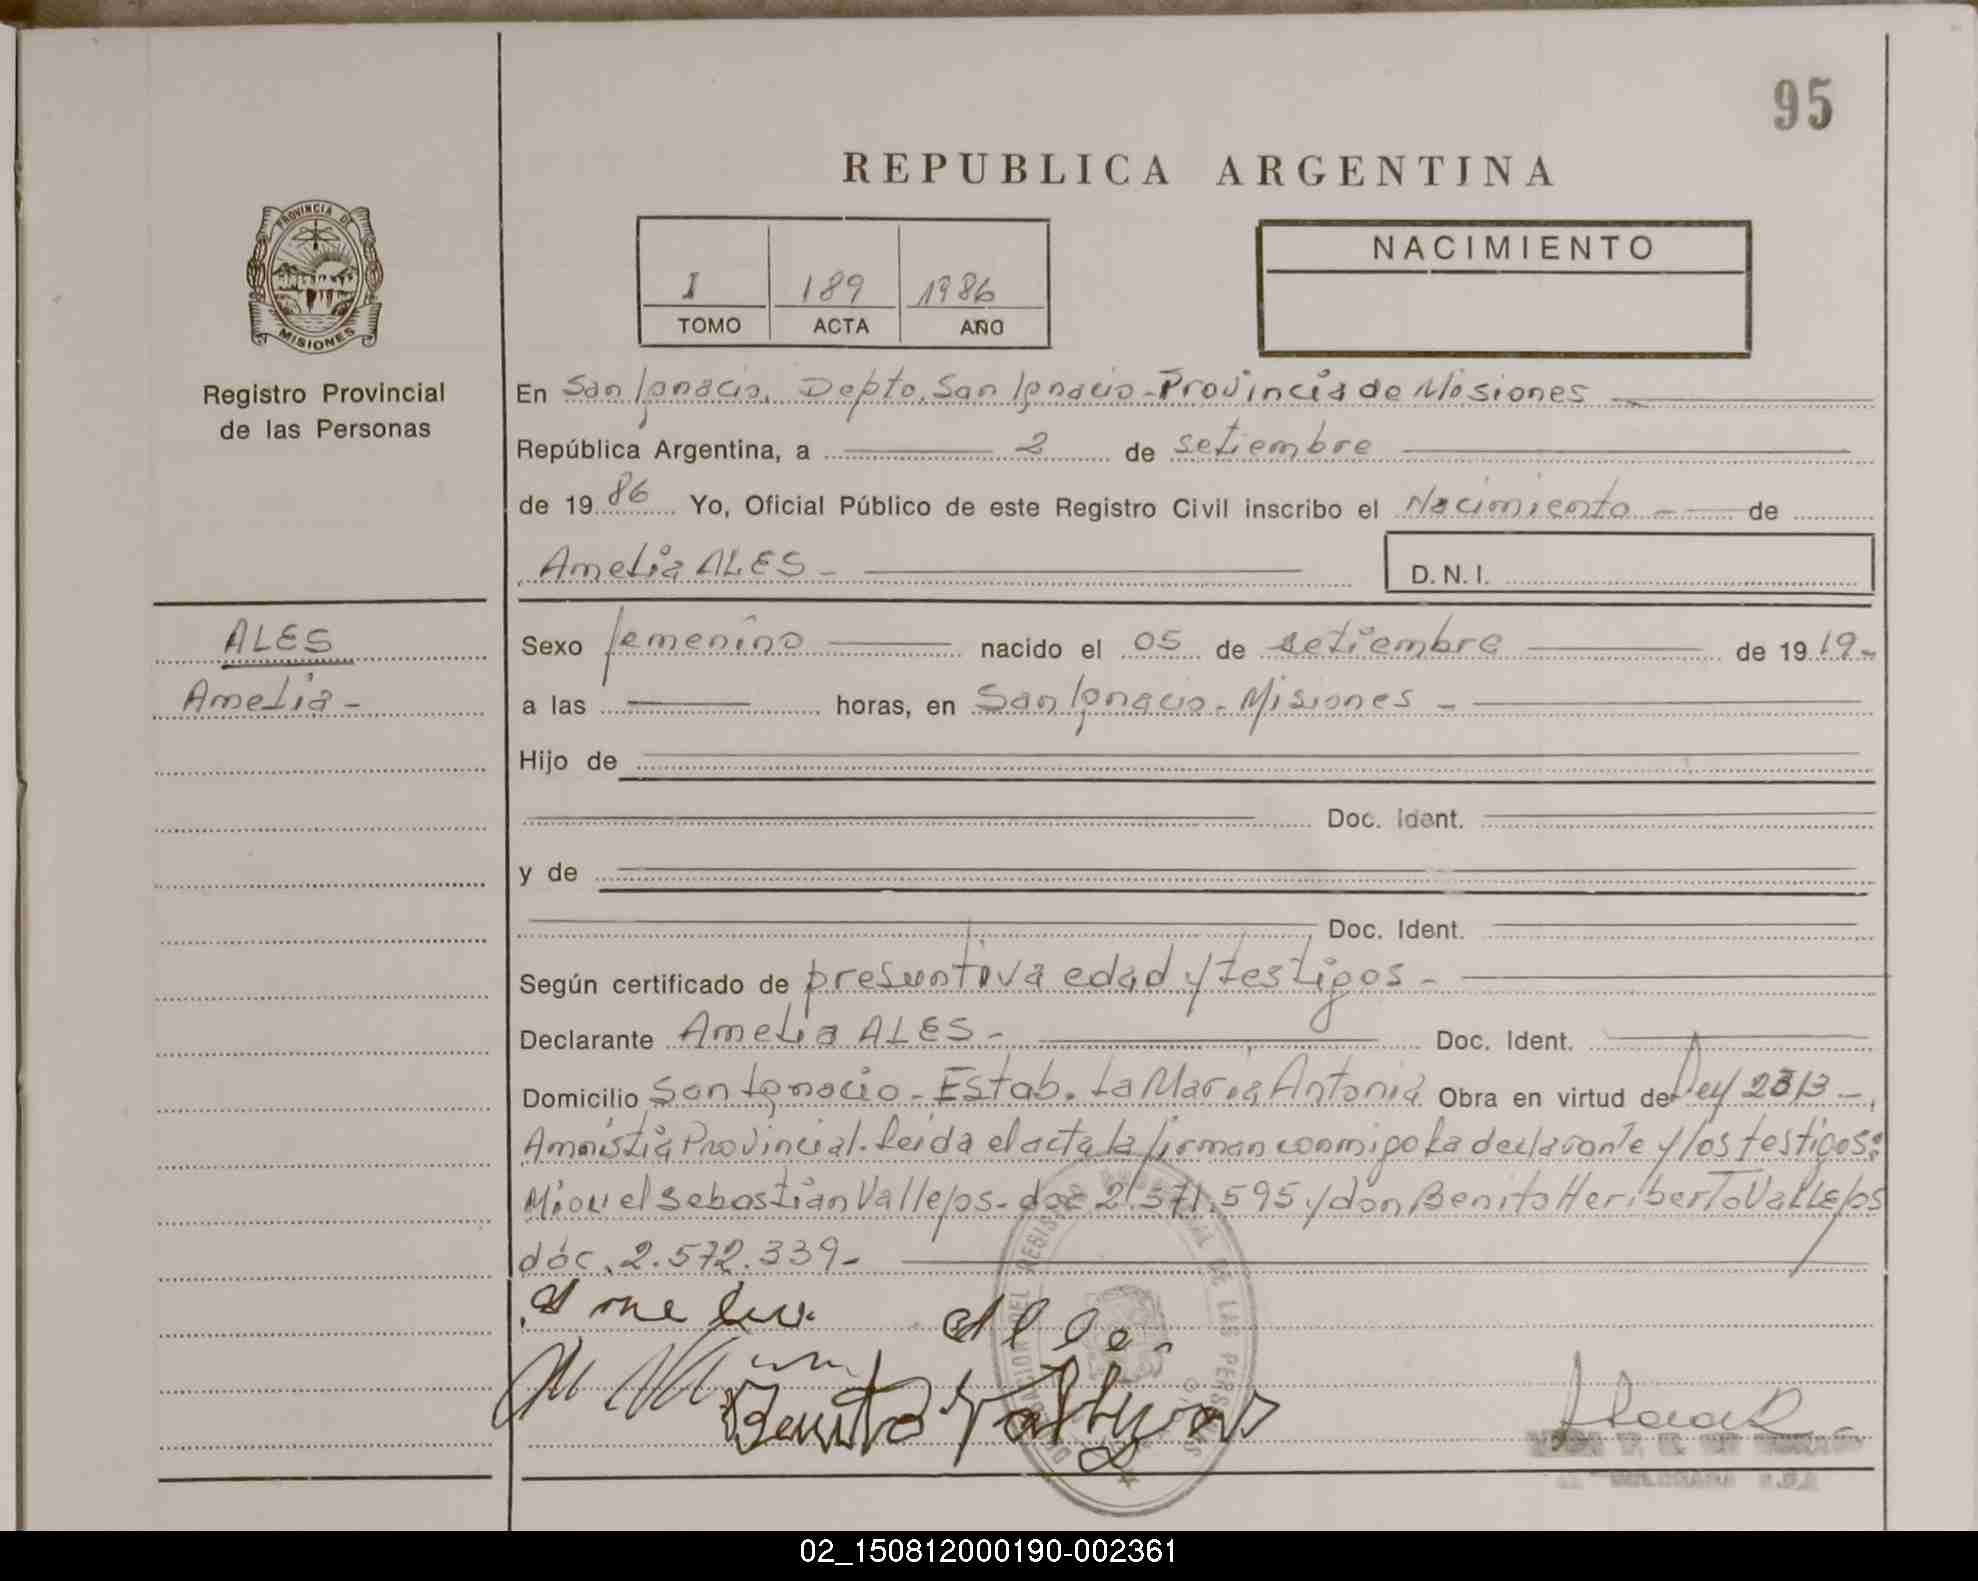 95
REPUBLICA ARGENTINA
PROVINCIA DE
MISIONES
Registro Provincial
de las Personas
I 189 1986
TOMO ACTA AÑO
NACIMIENTO
En San Ignacio, Depto. San Ignacio - Provincia de Misiones
República Argentina, a 2 de setiembre
de 19 86 Yo, Oficial Público de este Registro Civil inscribo el Nacimiento - de
Amelia ALES -
D. N. I.
ALES
Amelia -
Sexo femenino nacido el 05 de setiembre de 19 19 -
a las horas, en San Ignacio - Misiones -
Hijo de
Doc. Ident.
y de
Doc. Ident.
Según certificado de presuntiva edad y testigos -
Declarante Amelia ALES - Doc. Ident.
Domicilio San Ignacio - Estab. La Maria Antonia Obra en virtud de Ley 2313 -
Amnistia Provincial. Leida el acta la firman conmigo la declarante y los testigos:
Miguel Sebastian Vallejos - doc 2.571.595 y don Benito Heriberto Vallejos
doc. 2.572.339 -
Benito Vallejos
02_150812000190-002361